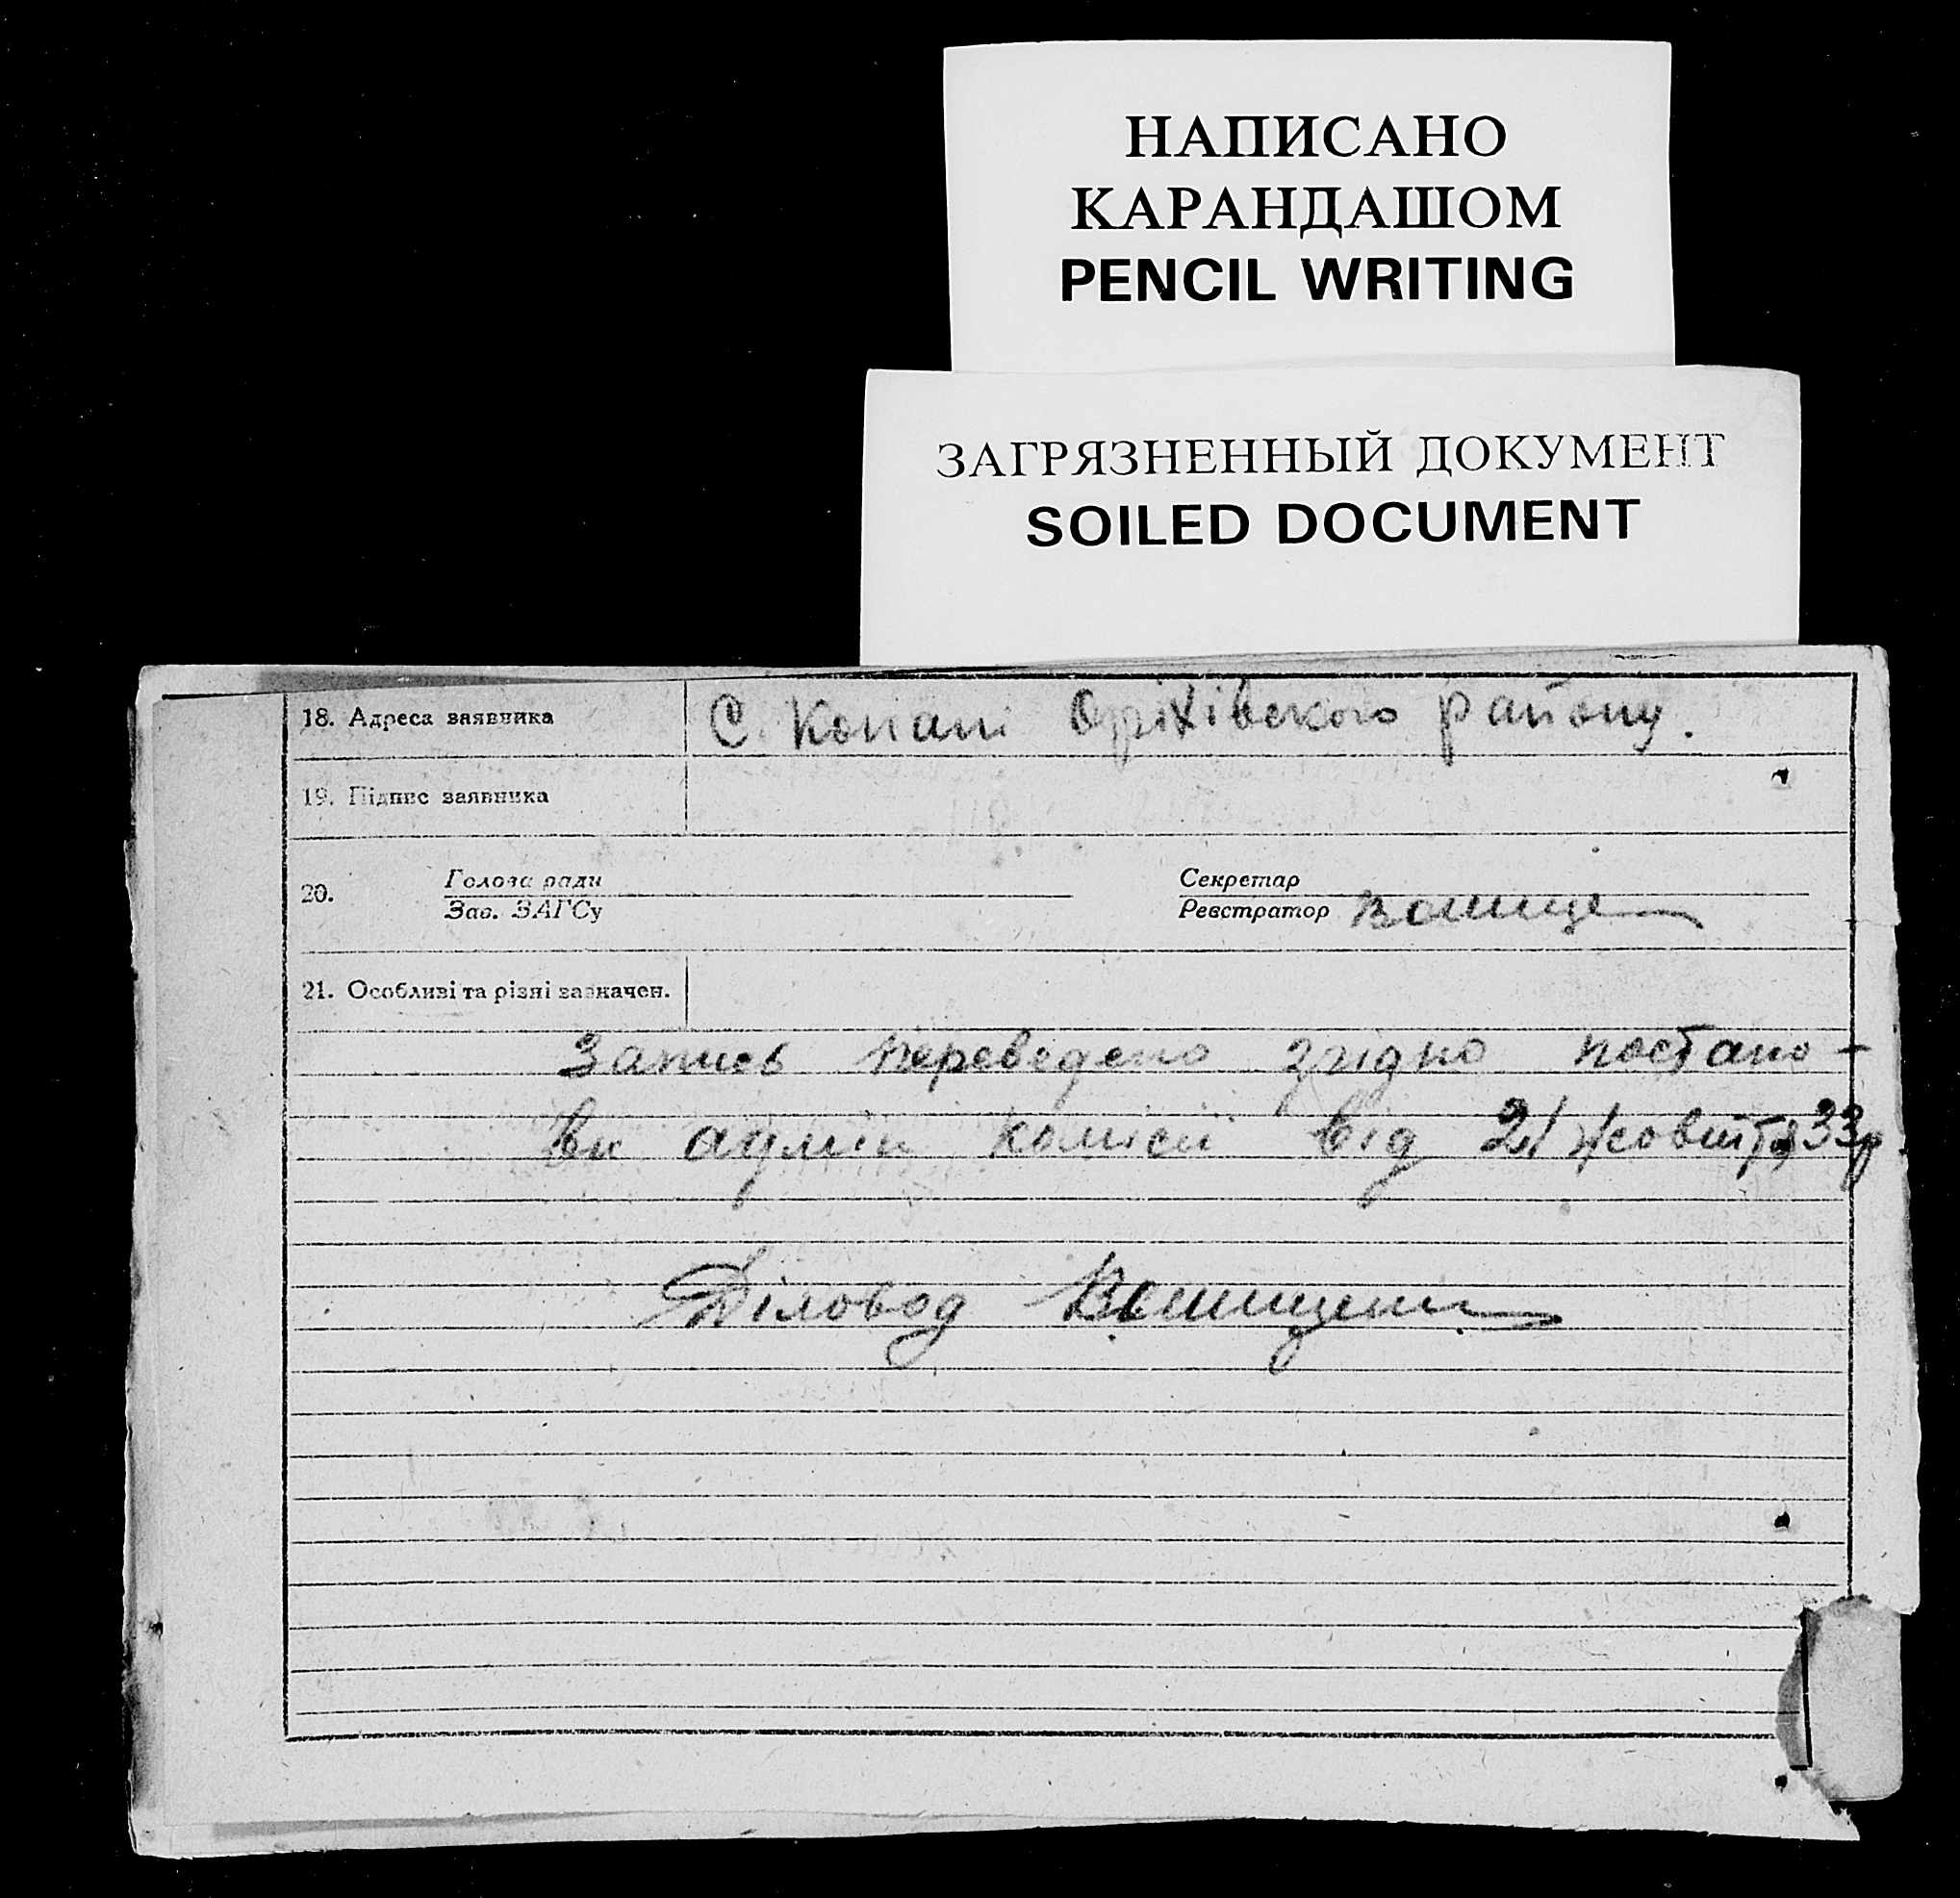 НАПИСАНО
КАРАНДАШОМ
PENCIL WRITING
ЗАГРЯЗНЕННЫЙ ДОКУМЕНТ
SOILED DOCUMENT
18. Адреса заявника С. Копані Оріхівского району.
19. Підпис заявника
Голова ради Секретар
20.
Зав. ЗАГСу Реєстратор
21. Особливі та різні зазначен.
Запись переведено згідно постано-
ви адмін комісії від 21 жовтня 33р.
Діловод